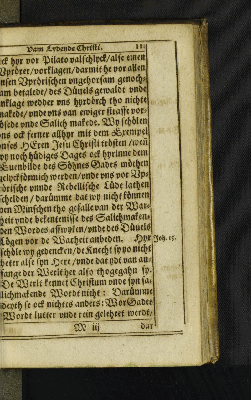 Vam Lydende Christi.
ck hyr vor Pilato valschlyck/alse einen
Vprörer/vorklagen/darmit he vor allen
nsen Vprörischen vngehorsam genoch-
am betalede/des Düuels gewaldt vnde
nklage wedder vns hyrdörch tho nichte
makede/vnde vns van ewiger straffe vor-
lösede vnde Salich makede. Wy schölen
ons ock ferner alhyr mit dem Exempel
onses HErrn Jesu Christi trösten/wen
vy noch hüdiges Dages ock hyrinne dem
Euenbilde des Söhnes Gades möthen
gelyckförmich werden/vnde vns vor Vp-
rörische vnnde Rebellische Lüde lathen
schelden/darümme dat wy nicht können
den Minschen tho gefalle van der War-
heit vnde bekentenisse des Salichmaken-
den Wordes affwylen/vnde des Düuels
Lögen vor de Warheit anbeden. Hyr
schöle wy gedencken/de Knecht sy yo nicht
beter alse syn Here/vnde dat ydt van an-
fange der Werlt her also thogegahn sy.
De Werlt kennet Christum vnde syn sa-
lichmakende Wordt nicht: Darümme
deyth se ock nichtes anders: Wor Gades
Wordt lutter vnde rein gelehret werdt/
M iij
dar
Joh. 15.